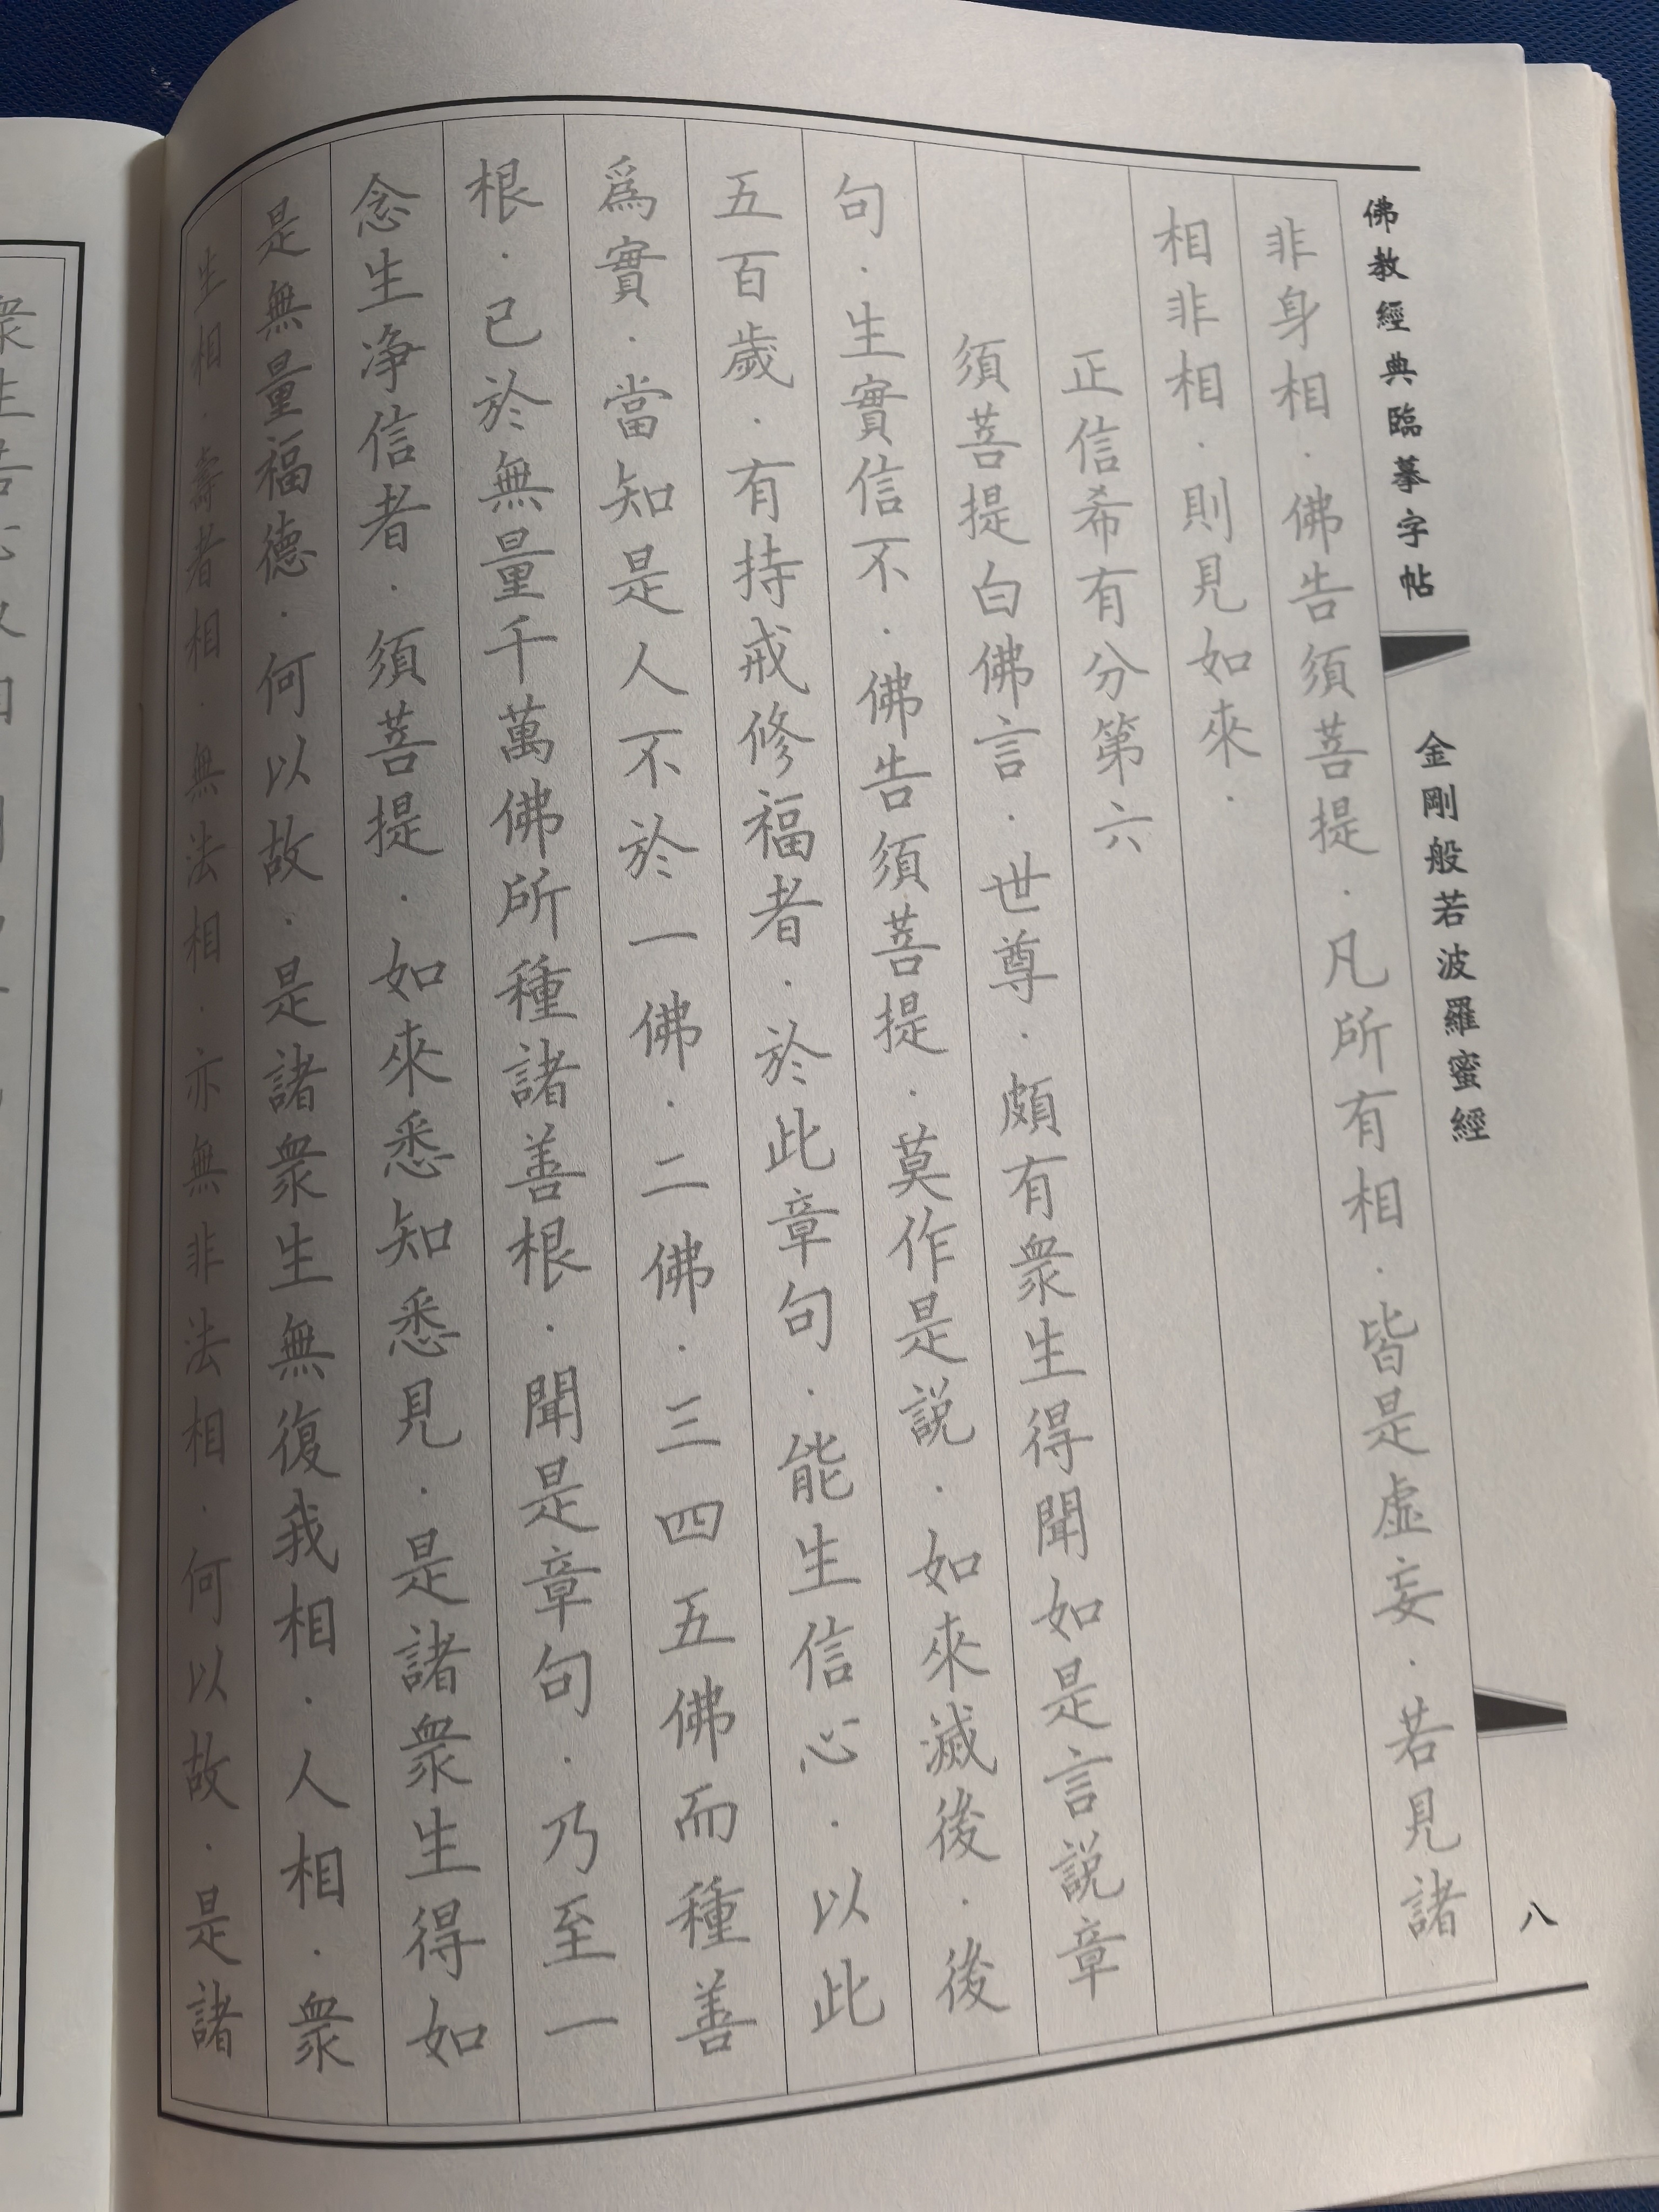 佛教經典臨摹字帖
金剛般若波羅蜜經
八
非身相·佛告須菩提·凡所有相·皆是虛妄·若見諸
相非相·則見如來·
正信希有分第六
須菩提白佛言·世尊·頗有衆生得聞如是言說章
句·生實信不·佛告須菩提·莫作是說·如來滅後·後
五百歲·有持戒修福者·於此章句·能生信心·以此
爲實·當知是人不於一佛·二佛·三四五佛而種善
根·已於無量千萬佛所種諸善根·聞是章句·乃至一
念生净信者·須菩提·如來悉知悉見·是諸衆生得如
是無量福德·何以故·是諸衆生無復我相·人相·衆
生相·壽者相·無法相·亦無非法相·何以故·是諸